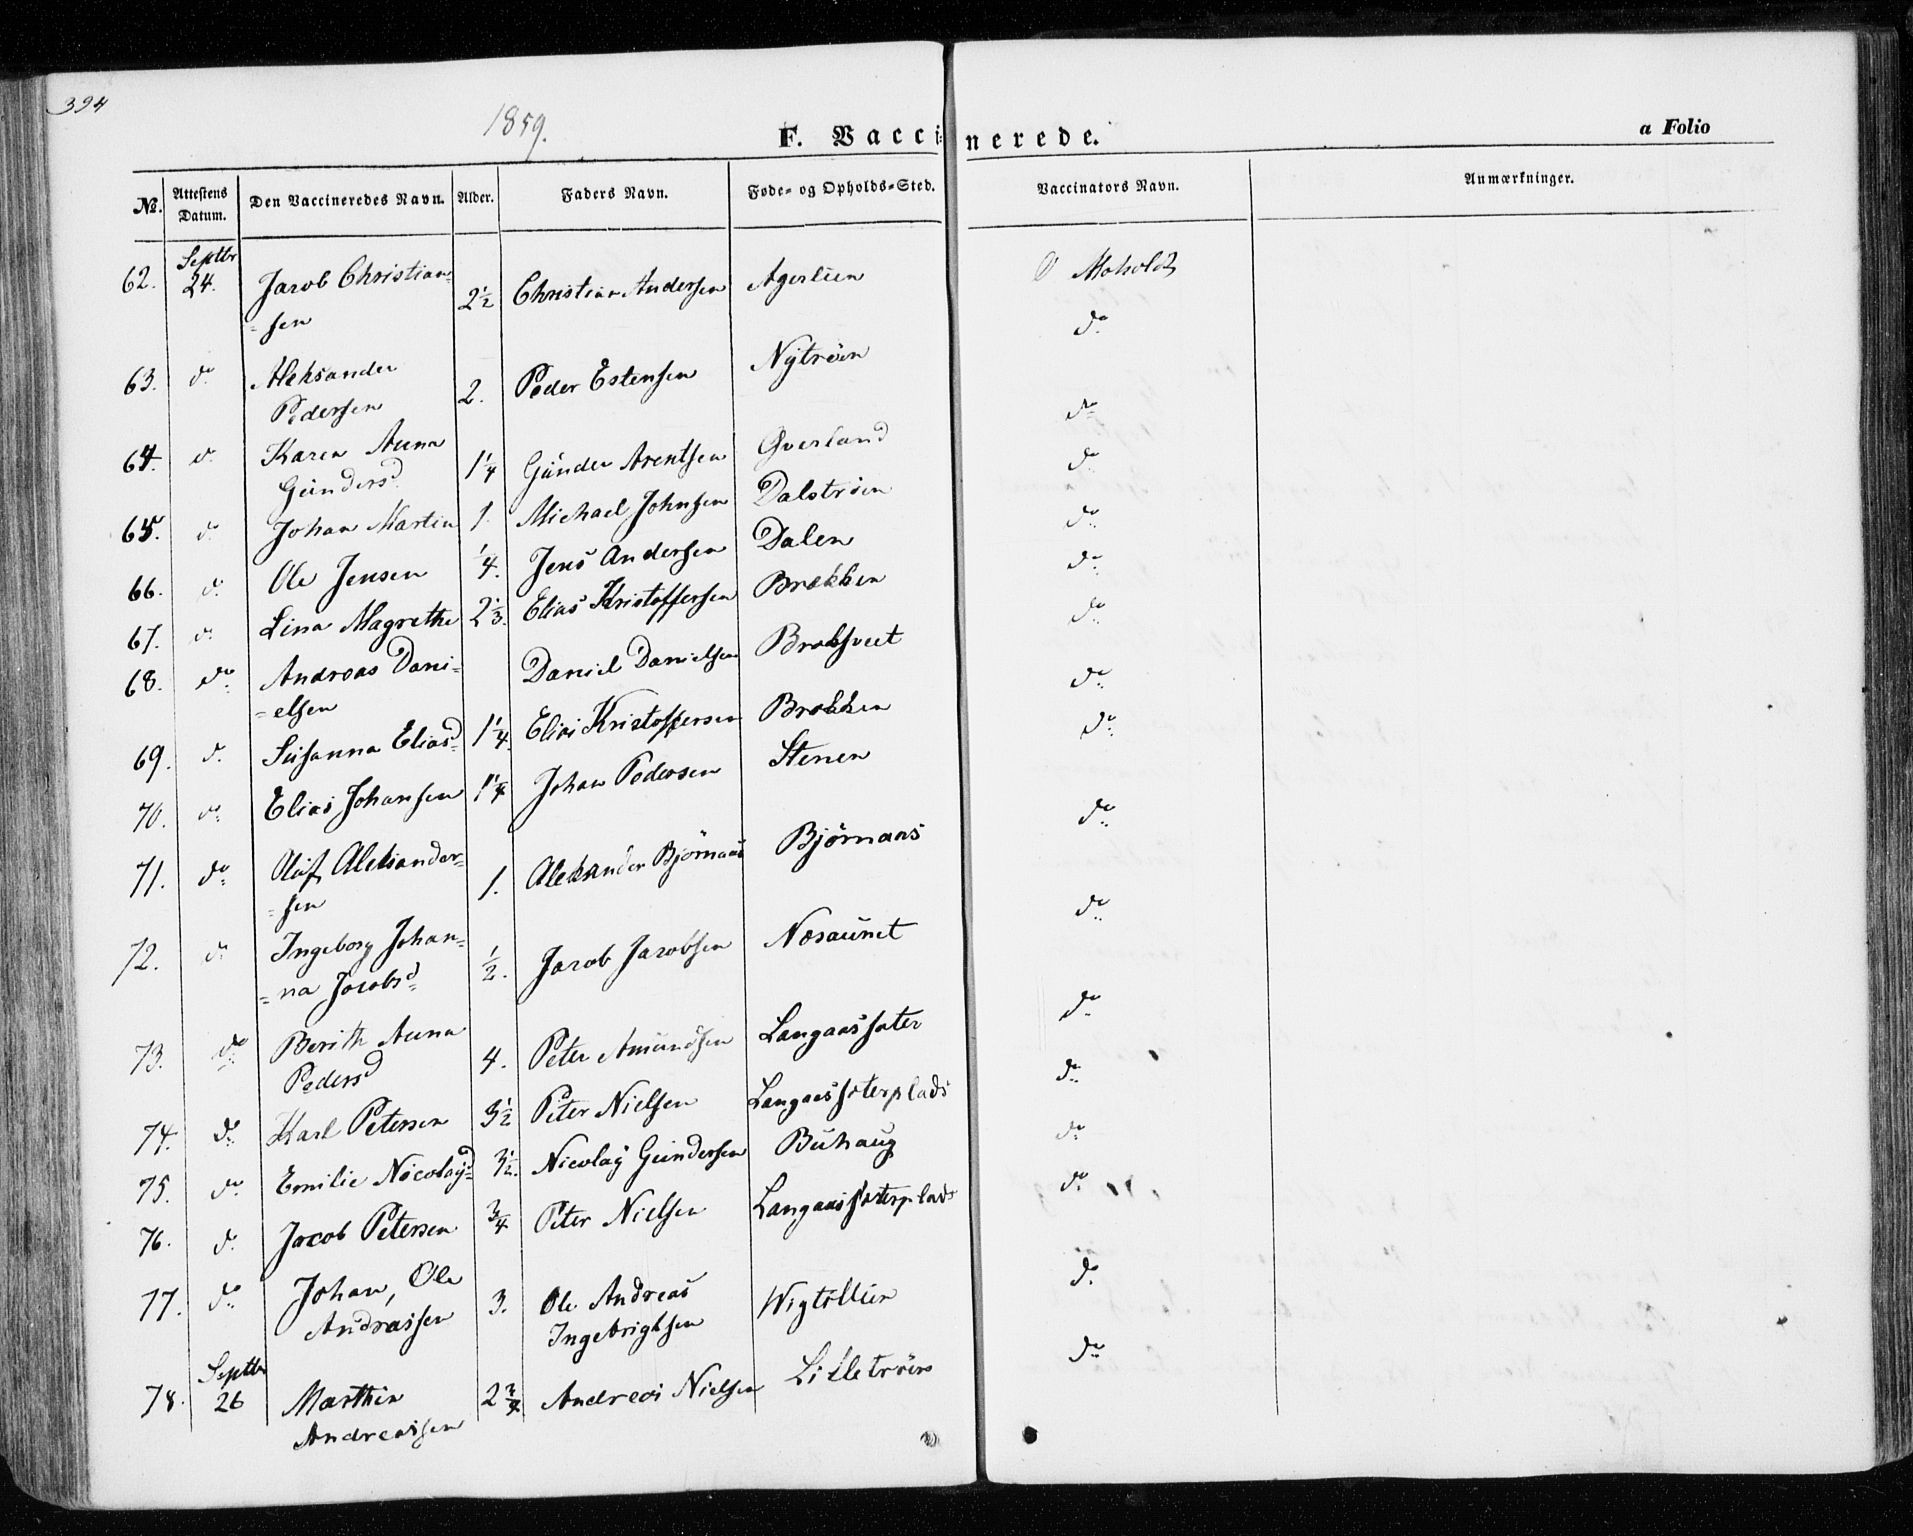 394
1859.
F. Vaccinerede.
a Folio
No. Attestens Datum. Den Vaccineredes Navn. Alder. Faders Navn. Føde- og Opholds-Sted. Vaccinators Navn. Anmærkninger.
62. Septbr 24. Jacob Christian= 2½ Christian Andersen Agerlien O Moholdt
=sen
63. do Aleksander 2. Peder Estensen Nytrøen do
Pedersen
64. do Karen Anna 1¼ Gunder Arentsen Qverland do
Gundersd
65. do Johan Martin 1. Michael Johnsen Dalstrøen do
66. do Ole Jensen ¼. Jens Andersen Dalen do
67. do Lina Magrethe 2⅓. Elias Kristoffersen Brækken do
68. do Andreas Dani= Daniel Danielsen Bræksveet do
=elsen
69. do Susanna Eliasd 1¼ Elias Kristoffersen Brækken do
70. do Elias Johansen 1¼ Johan Pedersen Stenen do
71. do Oluf Aleksander= 1. Aleksander Bjørnaas Bjørnaas do
=sen
72. do Ingeborg Johan= ½. Jacob Jacobsen Næsaunet do
=na Jacobsd
73. do Berith Anna 4. Peter Amundsen Langaassæter do
Pedersd
74. do Karl Petersen 3½ Peter Nielsen Langaassæterplads do
75. do Emilie Nicolayd 3½. Nicolay Gundersen Buhaug do
76. do Jacob Petersen ¾ Peter Nielsen Langaassæterplads do
77. do Johan, Ole 3. Ole Andreas Wigtillien do
Andreassen Ingebrigtsen
78. Septbr 26 Marthin 2¾ Andreas Nielsen Lilletrøen do
Andreassen